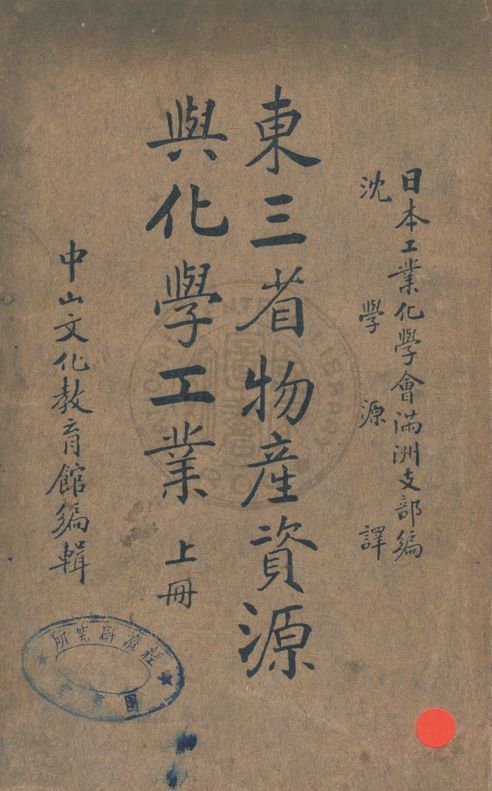 日本工業化學會滿洲支部編
沈學源譯
東三省物產資源
與化學工業 上冊
中山文化教育館編輯
經濟研究所
圖